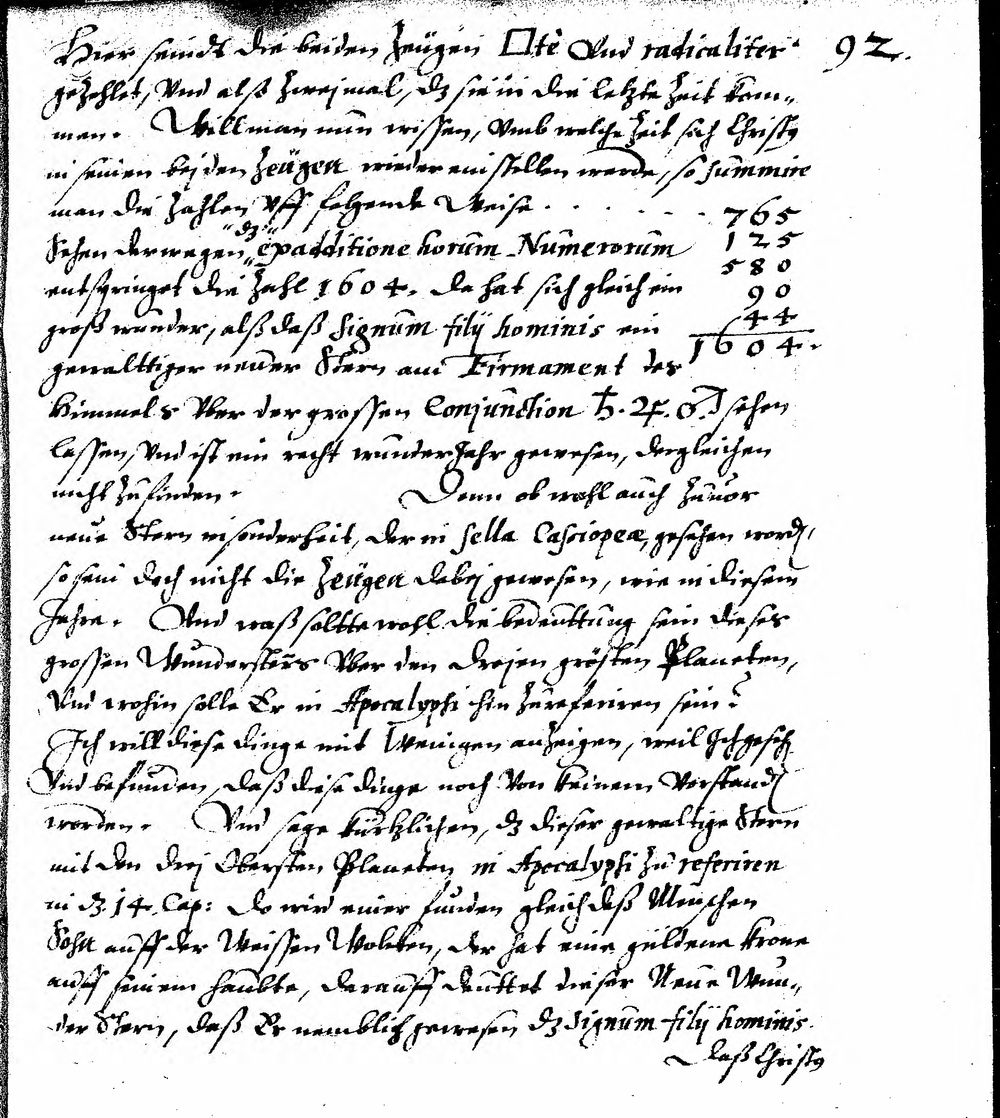 92.
Hier seindt die beiden Zeügen □te Vnd radicaliter
gezehlet, Vnd alß zweymal, dz sie in die letzte Zeit kom-
men. Will man nun wissen, Vmb welche Zeit sich Christ9
in seinen beyden Zeügen wieder einstellen werde, so Summire
man die Zahlen Vff folgende Weise . . . . . . . 765
125
580
90
44
1604.
Sehen derwegen "dz" ex additione horum Numerorum
entspringet die Zahl 1604. da hat sich gleich ein
groß wunder, alß daß Signum filij hominis ein
gewalttiger neuer Stern am Firmament des
Himmels Vber der grossen Conjunction ♄. ♃. ♂. sehen
lassen, Vnd ist ein recht wunder Jahr gewesen, dergleichen
nicht Zufinden. Denn ob wohl auch Zuuor
neue Stern insonderheit, der in sella Cassiopeæ, gesehen word,
so sein doch nicht die Zeügen dabej gewesen, wie in diesem
Jahre. Vnd waß soltte wohl die bedeuttung sein dieses
grossen Wundersterns Vber den dreyen grösten Planeten,
Vnd wohin solle Er in Apocalypsi hin Zureferiren sein?
Ich will diese dinge mit Wenigen anzeigen, weil Ich gesehn
Vnd befunden, daß diese dinge noch Von keinem Verstand
worden. Vnd sage kürtzlichen, dz dieser gewaltige Stern
mit den drej Obersten Planeten in Apocalypsi Zu referiren
in dz 14. Cap: do wird einer funden gleich deß Menschen
Sohn auff der Weissen Wolcken, der hat eine güldene Krone
auff seinem Haubte, darauff deuttet dieser Neue Wun-
der Stern, daß Er nemblich gewesen dz Signum filij hominis.
daß Christ9